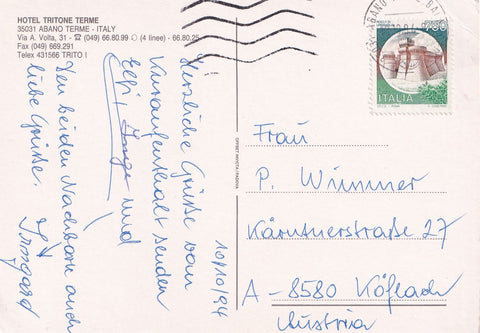 HOTEL TRITONE TERME
35031 ABANO TERME - ITALY
Via A. Volta, 31 - ☎ (049) 66.80.99 ○ (4 linee) - 66.80.25
Fax (049) 669.291
Telex 431566 TRITO I
10/10/94
Herzliche Grüße vom
Kuraufenthalt senden
Elfi, Inge und
Irmgard
Den beiden Nachbarn auch
liebe Grüße.
OFFSET INVICTA PADOVA
ABANO
750
ITALIA
Frau
P. Wimmer
Kärntnerstraße 27
A - 8580 Köflach
Austria